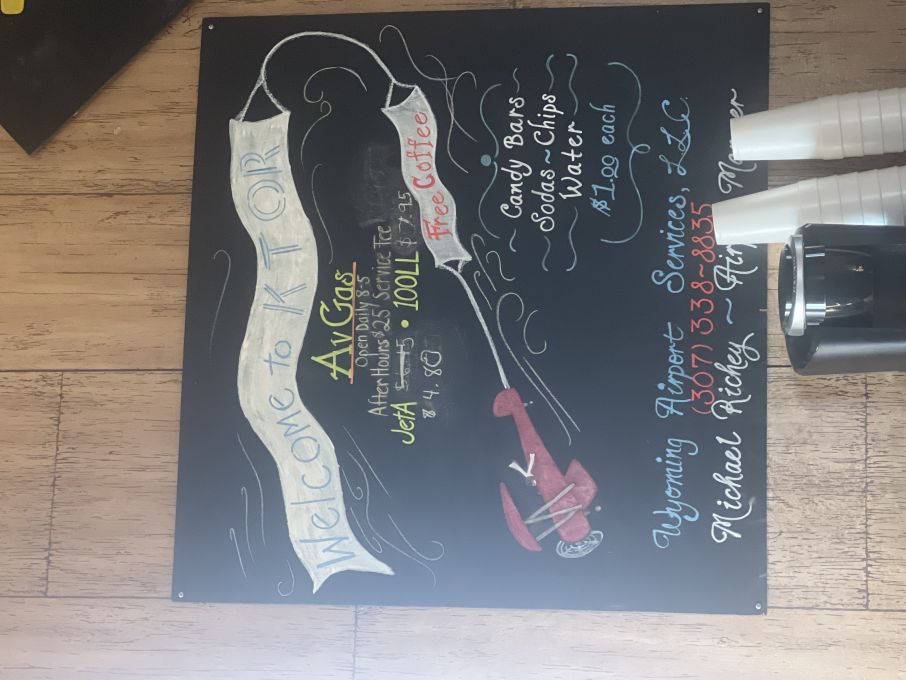 Welcome to KTOR
AvGas
Open Daily 8-5
After Hours $25 Service Fee
JetA $6.15 • 100LL $7.95
$4.80
Free Coffee
~ Candy Bars ~
Sodas ~ Chips
Water
$1.00 each
Wyoming Airport Services, LLC.
(307) 338-8835
Michael Richey ~